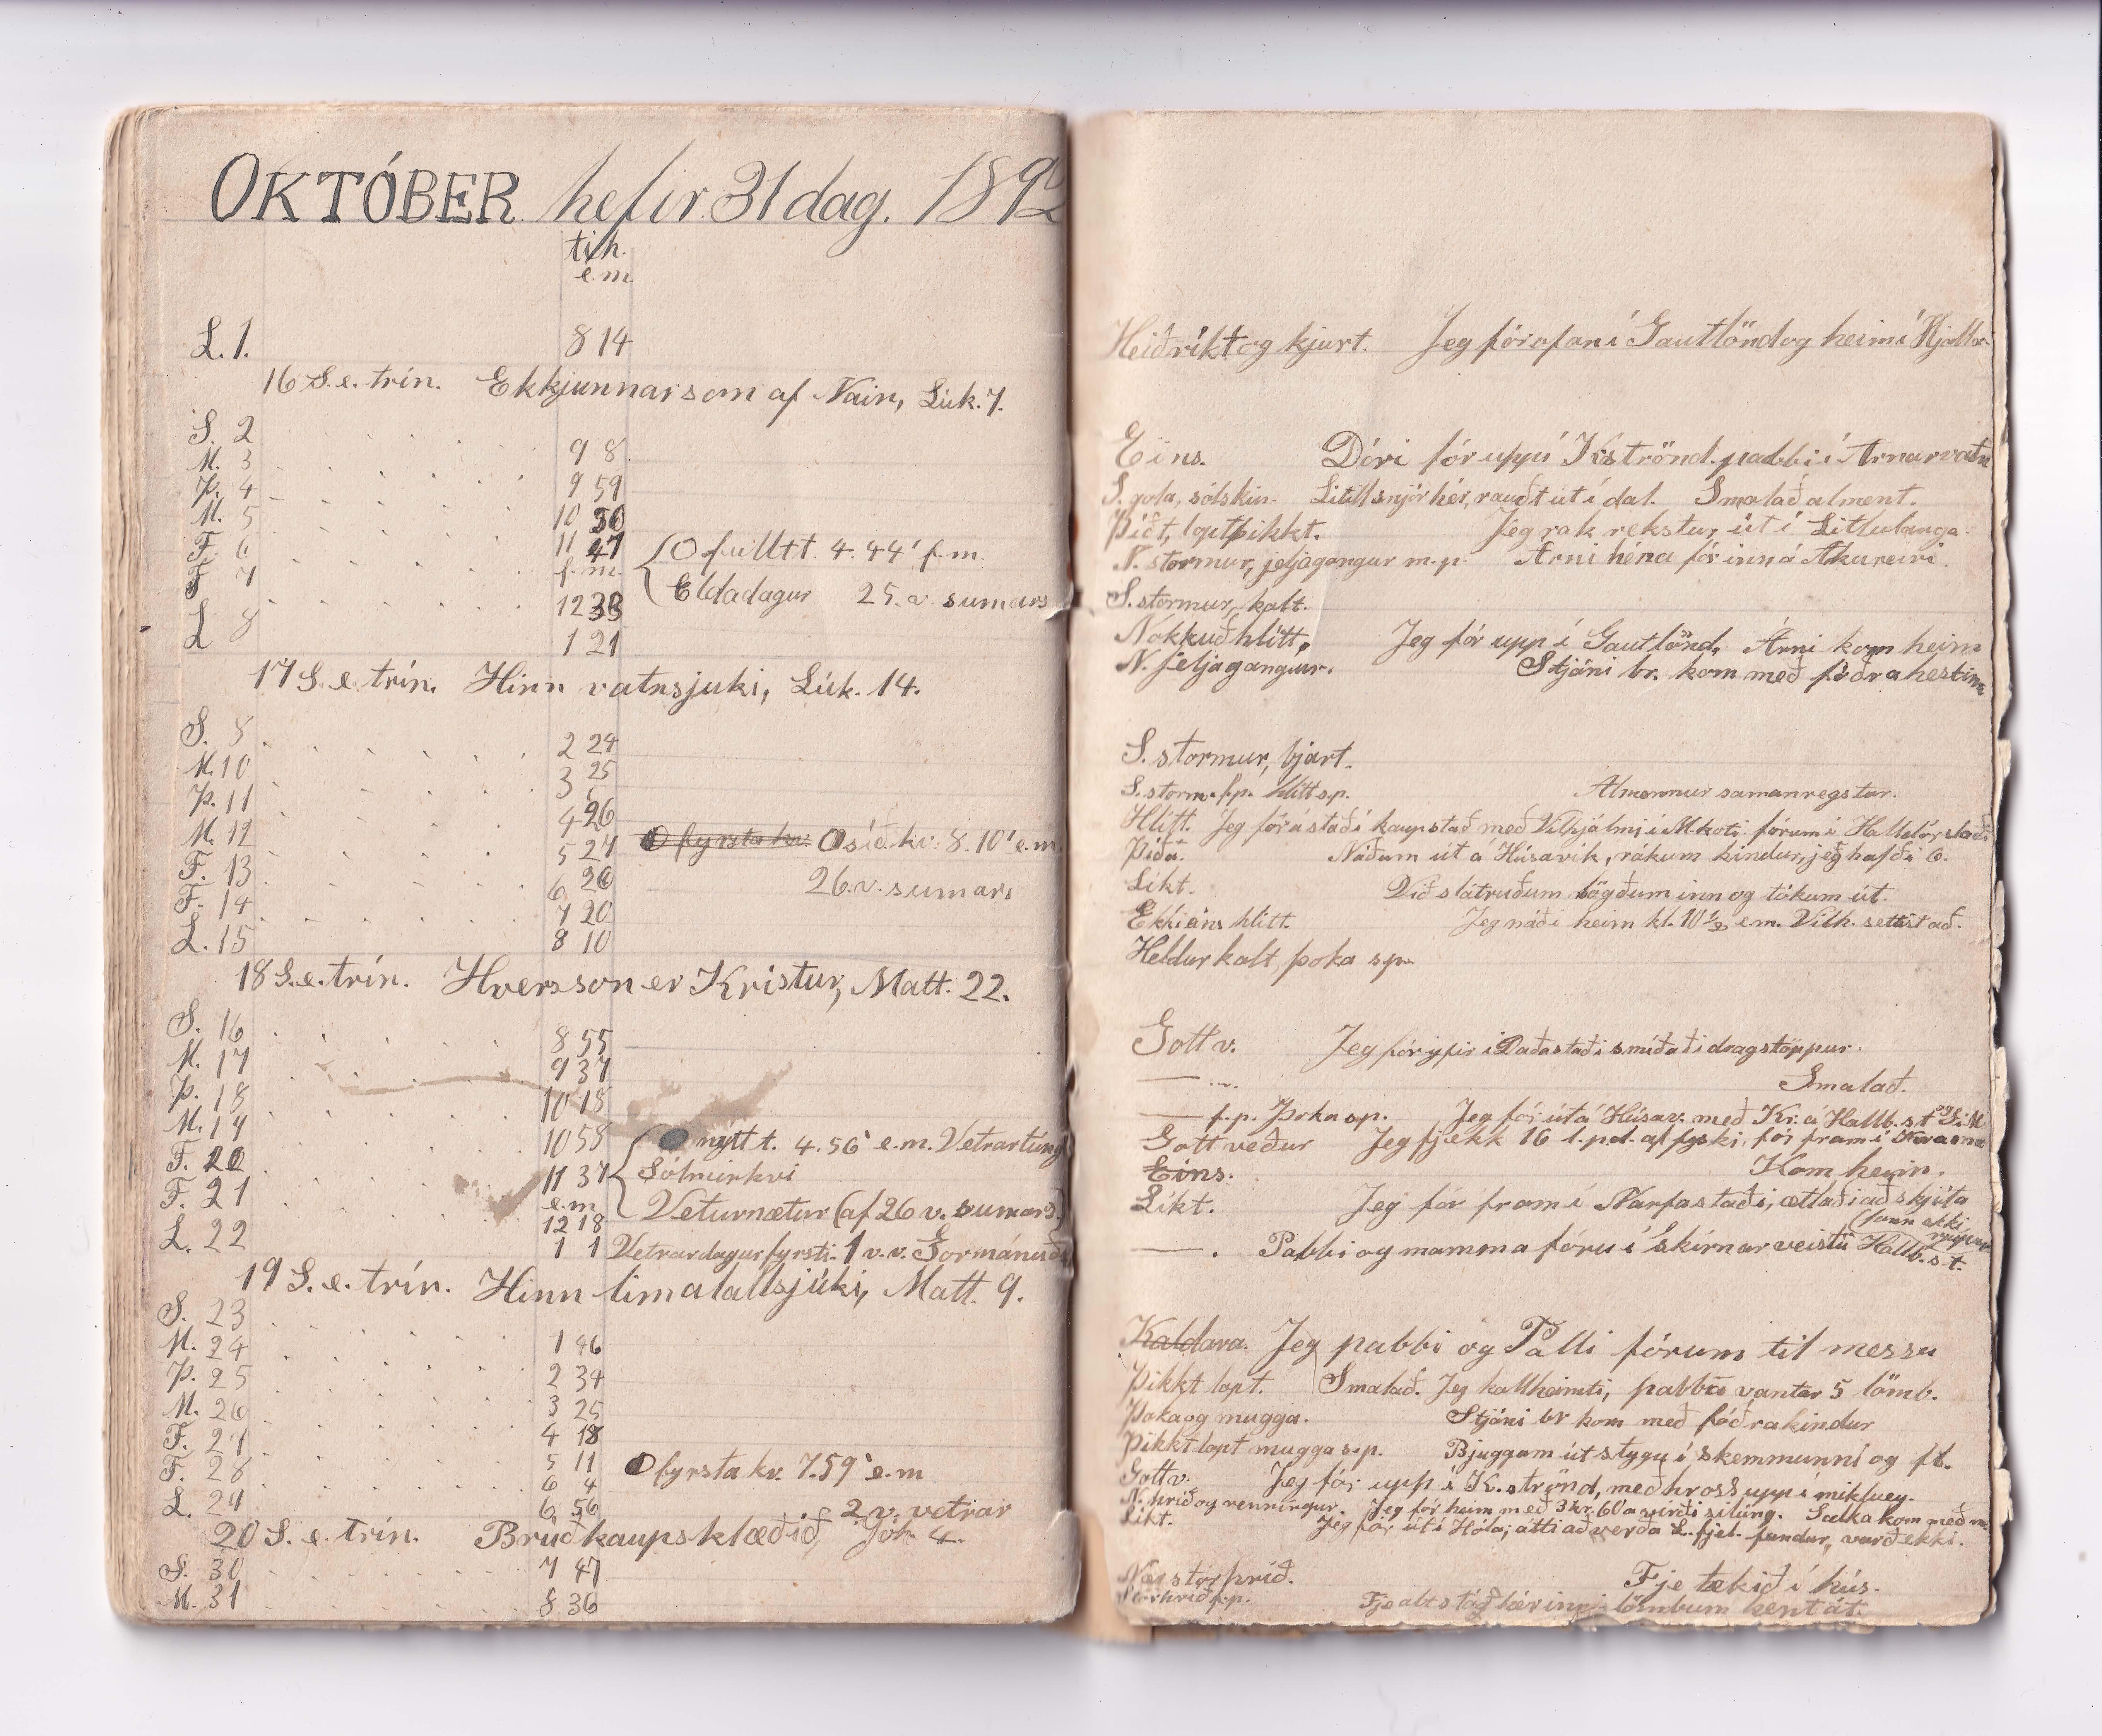 OKTÓBER hefir 31 dag. 1892
t.h.
e.m.
L. 1. 8 14
16 S. e. trín. Ekkjunnar son af Nain, Lúk. 7.
S. 2
M. 3 9 8
Þ. 4 9 59
M. 5 10 50
F. 6 11 47 O fullt t. 4. 44' f.m.
f.m.
F 7 12 33 Eldadagur 25. v. sumars
L 8 1 21
17 S. e. trín. Hinn vatnsjuki, Lúk. 14.
S. 2 24
M. 10 3 25
Þ. 11 4 26
M. 12 5 27 O fyrsta kv. O síð. kv. 8. 10' e.m.
F. 13 6 26 26. v. sumars
F. 14 7 20
L. 15 8 10
18 S. e. trín. Hvers son er Kristur, Matt. 22.
S. 16 8 55
M. 17 9 37
Þ. 18 10 18
M. 19 10 58 nýtt t. 4. 56' e.m. Vetrartúngl
F. 20 11 37 Sólmirkvi
e.m
F. 21 12 18 Veturnætur (af 26 v. sumars.)
L. 22 1 1 Vetrardagur fyrsti. 1 v. v. Gormánuður
19 S. e. trín. Hinn limafallsjúki, Matt. 9.
S. 23 1 46
M. 24 2 34
Þ. 25 3 25
M. 26 4 18
F. 27 5 11 O fyrsta kv. 7. 59' e.m
F. 28 6 4
L. 29 6 56 2 v. vetrar
20 S. e. trín. Bruðkaupsklæðið, Jóh. 4.
S. 30 7 47
M. 31 8 36
Heiðríkt og kjurt. Jeg fór ofan í Gautlönd og heim í Hjalla.
Eins. Dóri fór upp í K.strönd. pabbi í Arnarvatn
S. gola, sólskin. Lítill snjór hér, rauðt út í dal. Smalað alment.
Þítt, loptþikkt. Jeg rak rekstur, út í Litlulauga.
N. stormur, jeljagangur m.p. Árni héna fór inn á Akureiri.
S. stormur, kalt.
Nokkuð hlítt. Jeg fór upp í Gautlönd, Árni kom heim
N. jeljagangur. Stjáni br. kom með fóðrahestinn
S. stormur, bjart.
S. storm. f.p. hlítt s.p. Almennur samanregstur.
Hlítt. Jeg fór ástað í kaupstað með Vilhjálmi í M.koti fórum í Halldórstaði
Þíða. Náðum út á Húsavík, rákum kindur, jeg hafði 6.
Líkt. Við slátruðum lögðum inn og tókum út.
Ekki eins hlítt. Jeg náði heim kl. 10 1/2 e.m. Vilh. settist að.
Heldur kalt, þoka s.p.
Gott v. Jeg fór yfir í Daðastaði smíðaði dragstöppur.
— . v. Smalað.
— f.p. Þoka s.p. Jeg fór út á Húsav. með Kr. á Hallb.st
Gott veður Jeg fjekk 16 l.pd. af fyski, fór fram í
Eins. Kom heim.
Líkt. Jeg fór fram í Narfastaði, ætlaði að skjóta
(fann ekki rjúpur
— . Pabbi og mamma fóru í skírnarveislu Hallb.st.
Kaldara. Jeg pabbi og Palli fórum til messu
Þikkt lopt. Smalað. Jeg kallheimti, pabba vantar 5 lömb.
Þoka og mugga. Stjáni br kom með fóðrakindur
Þikkt lopt mugga s.p. Bjuggum út stygu í skemmunni og fl.
Gott v. Jeg fór upp í K. strönd, með hross upp í mikluey.
N. hríð og renningur. Jeg fór heim með 3 kr. 60 a virði silúng. Salka kom með m.
Líkt. Jeg fór út í Hóla, átti að verða L. fjel. fundur, varð ekki.
Nær stórhríð. Fje tekið í hús.
Stórhríð f.p. Fje alt stóð hér inni lömbum hent át.